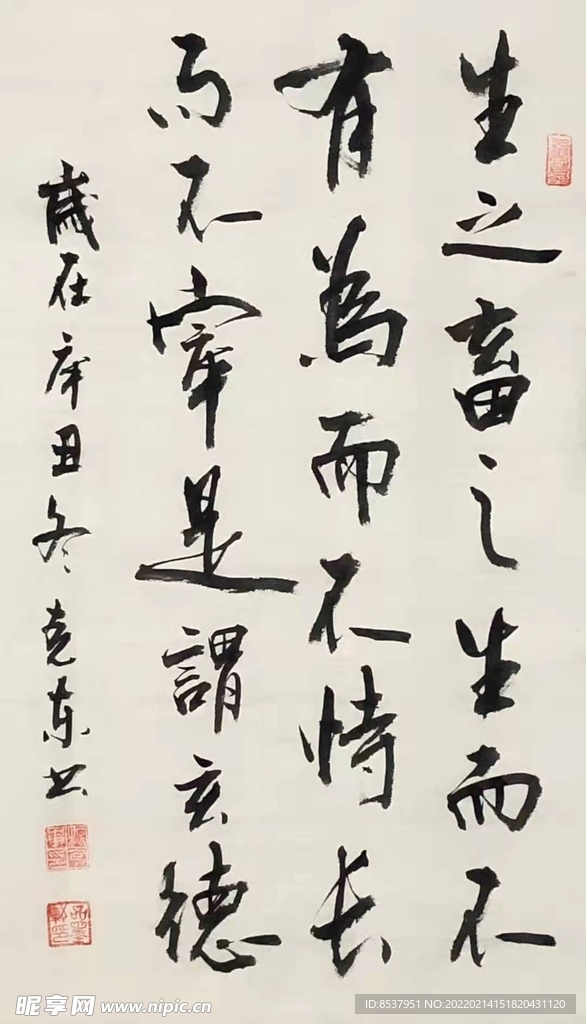 生之畜之生而不
有為而不恃長
而不宰是謂玄德
歲在辛丑冬克东书
昵享网 www.nipic.cn
ID:8537951 NO:20220214151820431120